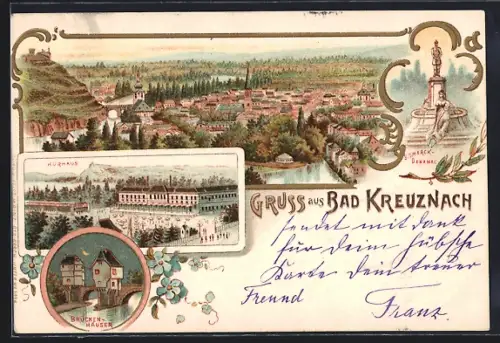 KURHAUS
BISMARCK-
DENKMAL
GRUSS aus BAD KREUZNACH
sendet mit dank
für Deine hübsche
Karte Dein treuer
Freund
Franz.
BRÜCKEN-
HÄUSER